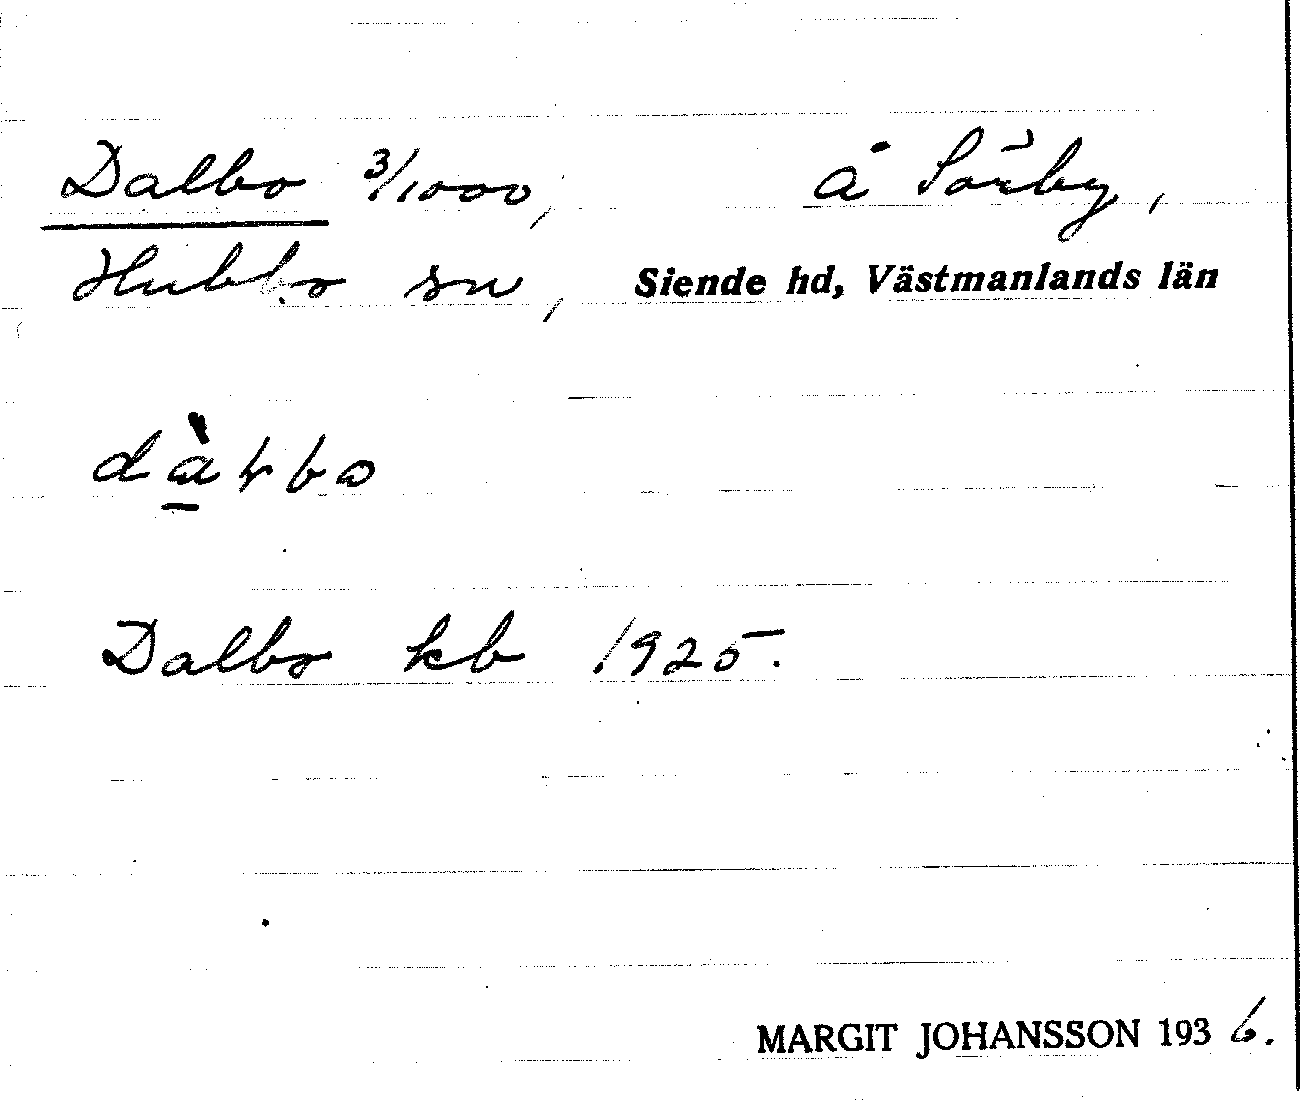 Dalbo 3/1000, å Sörby,
Hubbo sn, Siende hd, Västmanlands län
Dalbo kb 1925.
MARGIT JOHANSSON 1936.